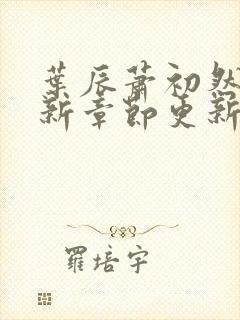 葉辰蕭初然
新章節更新
羅培宇